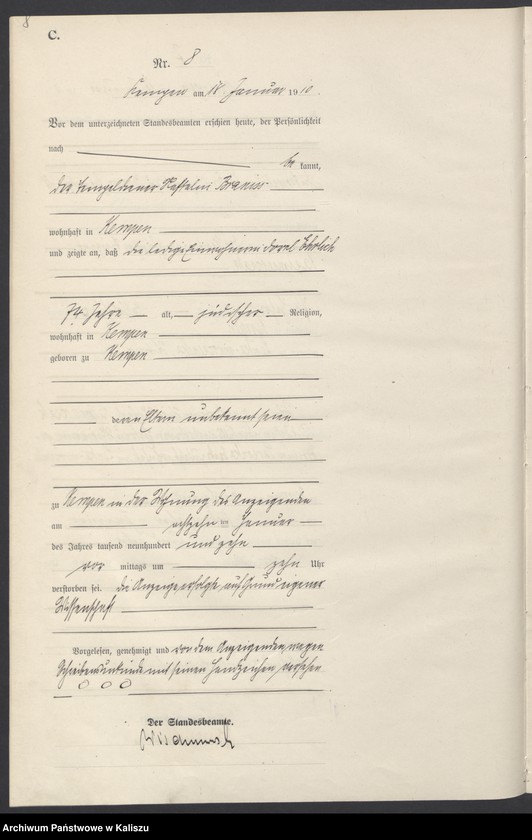 8
C.
Nr. 8
Kempen am 18 Januar 1910.
Vor dem unterzeichneten Standesbeamten erschien heute, der Persönlichkeit
nach
be kannt,
der Tempeldiener Breniss
wohnhaft in Kempen
und zeigte an, daß die ledige Einwohnerin Dorel Ehrlich
74 Jahre alt, jüdischer Religion,
wohnhaft in Kempen
geboren zu Kempen
unbekannt
zu Kempen in der Wohnung des Anzeigenden
am achtzehn ten Januar
des Jahres tausend neunhundert und zehn
vor mittags um zehn Uhr
verstorben sei. Die Anzeige erfolgte auf Grund eigener
Wissenschaft
Vorgelesen, genehmigt und von dem Anzeigenden wegen
Schreibensunkunde mit seinen Handzeichen versehen
o o o
Der Standesbeamte.
Archiwum Państwowe w Kaliszu